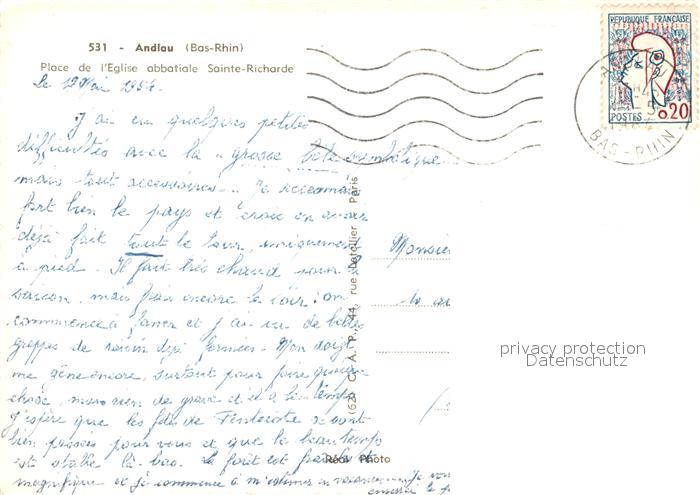 531 - Andlau (Bas-Rhin)
Place de l'Eglise abbatiale Sainte-Richarde
REPUBLIQUE FRANÇAISE
POSTES 0,20
BAS-RHIN
Le Mai
J'ai eu quelques petites
difficultés avec la "grosse bête
mais tout
fort bien le pays et crois en avoir
déjà fait tout le tour, uniquement
à pied. Il fait très chaud pour la
saison, mais frais encore le soir : on
commence à faner et j'ai vu de belles
grappes de raisin déjà formées. Mon doigt
me gêne encore, surtout pour faire quelque
chose, mais rien de grave et il a le temps.
J'espère que les fêtes de Pentecôte se sont
bien passées pour vous et que le beau temps
est stable là-bas. La forêt est fraîche et
magnifique et je commence à en vacances. Je vous
Monsieur
(62) C. A. P., 44, rue Ratellier Paris
Réal Photo
privacy protection
Datenschutz